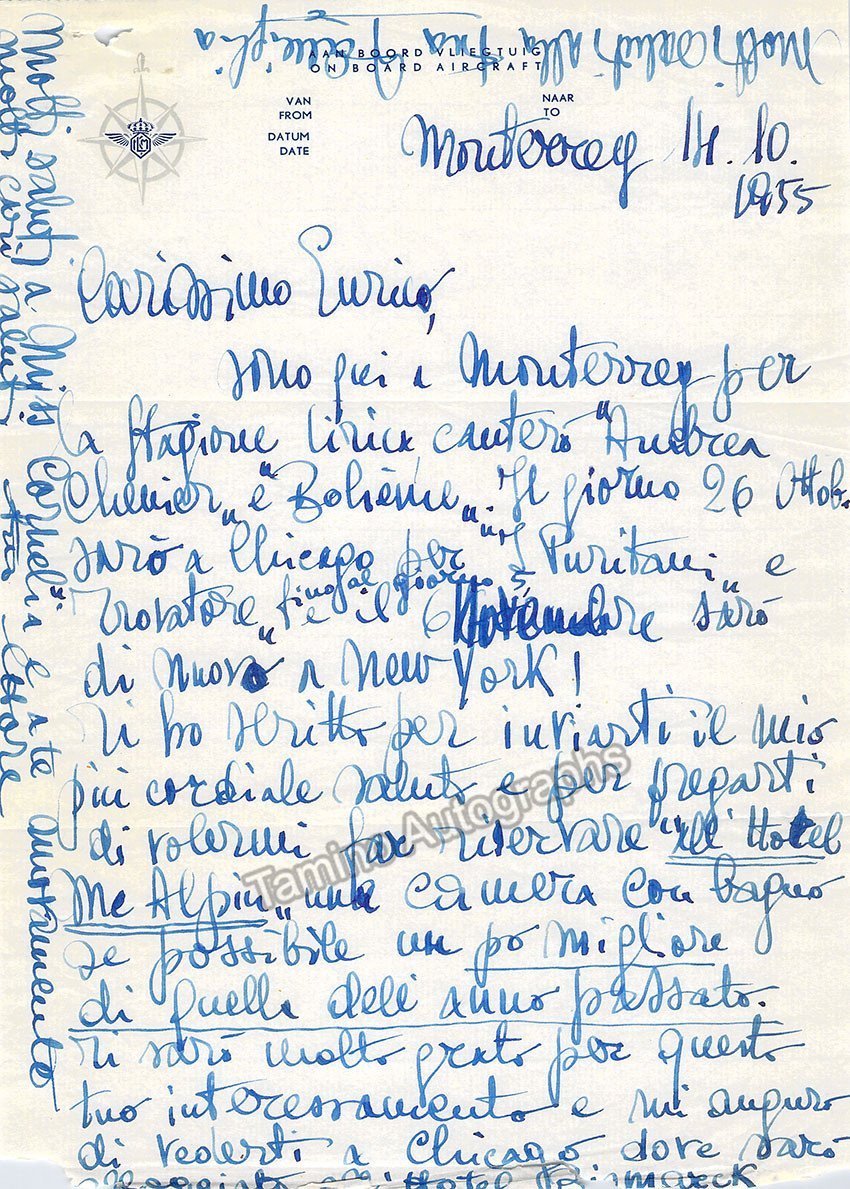 Molti saluti alla tua famiglia
AAN BOORD VLIEGTUIG
ON BOARD AIRCRAFT
VAN
FROM
NAAR
TO
DATUM
DATE
KLM
Monterrey 14.10.
1955
Carissimo Enrico,
sono qui a Monterrey per
la stagione lirica canterò "Andrea
Chenier" e "Bohème". Il giorno 26 Ottob.
sarò a Chicago per "I Puritani" e
Trovatore" fino al giorno 5
e il 6 Novembre sarò
di nuovo a New York!
Ti ho scritto per inviarti il mio
più cordiale saluto e per pregarti
di volermi far riservare "all'Hotel
Mc Alpin" una camera con bagno
se possibile un po migliore
di quella dell'anno passato.
Ti sarò molto grato per questo
tuo interessamento e mi auguro
di vederti a Chicago dove sarò
alloggiato all'Hotel Bismarck
Molti saluti a Miss Cornelia e a te unitamente
molti cari saluti tuo
Tamino Autographs